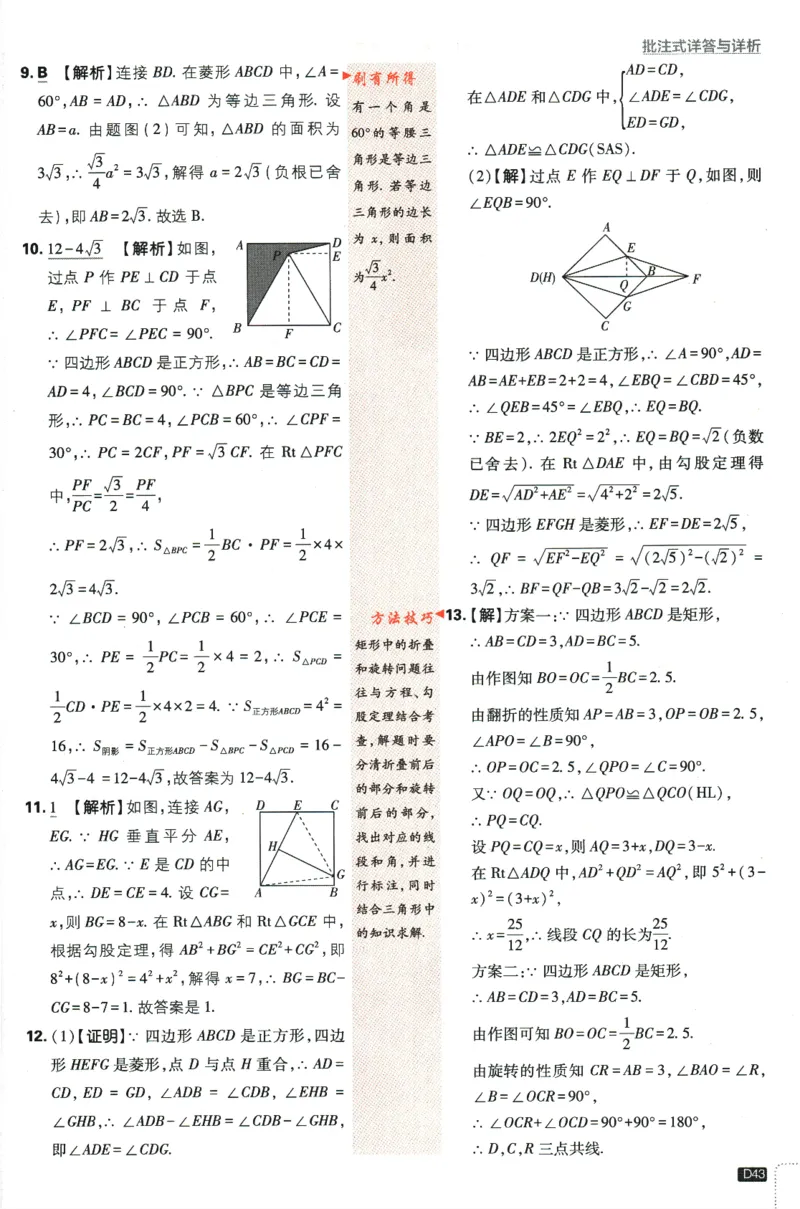 批注式详答与详析
9.B 【解析】连接 BD. 在菱形 ABCD 中,∠A=
60°,AB=AD,∴ △ABD 为等边三角形. 设
AB=a. 由题图(2)可知,△ABD 的面积为
3√3,∴ √3/4 a²=3√3,解得 a=2√3(负根已舍
去),即 AB=2√3. 故选 B.
10. 12-4√3 【解析】如图,
过点 P 作 PE⊥CD 于点
E, PF ⊥ BC 于点 F,
∴ ∠PFC=∠PEC=90°.
A
D
P
E
B
F
C
∵ 四边形 ABCD 是正方形,∴ AB=BC=CD=
AD=4,∠BCD=90°. ∵ △BPC 是等边三角
形,∴ PC=BC=4,∠PCB=60°,∴ ∠CPF=
30°,∴ PC=2CF,PF=√3CF. 在 Rt△PFC
中,PF/PC=√3/2=PF/4,
∴ PF=2√3,∴ S△BPC=1/2 BC·PF=1/2×4×
2√3=4√3.
∵ ∠BCD=90°,∠PCB=60°,∴ ∠PCE=
30°,∴ PE=1/2 PC=1/2×4=2,∴ S△PCD=
1/2 CD·PE=1/2×4×2=4. ∵ S正方形ABCD=4²=
16,∴ S阴影=S正方形ABCD-S△BPC-S△PCD=16-
4√3-4=12-4√3,故答案为 12-4√3.
11. 1 【解析】如图,连接 AG,
EG. ∵ HG 垂直平分 AE,
∴ AG=EG. ∵ E 是 CD 的中
点,∴ DE=CE=4. 设 CG=
D
E
C
H
G
A
B
x,则 BG=8-x. 在 Rt△ABG 和 Rt△GCE 中,
根据勾股定理,得 AB²+BG²=CE²+CG²,即
8²+(8-x)²=4²+x²,解得 x=7,∴ BG=BC-
CG=8-7=1. 故答案是 1.
12.(1)【证明】∵ 四边形 ABCD 是正方形,四边
形 HEFG 是菱形,点 D 与点 H 重合,∴ AD=
CD, ED = GD, ∠ADB = ∠CDB, ∠EHB =
∠GHB,∴ ∠ADB-∠EHB=∠CDB-∠GHB,
即∠ADE=∠CDG.
刷有所得
有一个角是
60°的等腰三
角形是等边三
角形. 若等边
三角形的边长
为 x,则面积
为√3/4 x².
方法技巧
矩形中的折叠
和旋转问题往
往与方程、勾
股定理结合考
查,解题时要
分清折叠前后
的部分和旋转
前后的部分,
找出对应的线
段和角,并进
行标注,同时
结合三角形中
的知识求解.
在△ADE 和△CDG 中,{AD=CD,
∠ADE=∠CDG,
ED=GD,
∴ △ADE≌△CDG(SAS).
(2)【解】过点 E 作 EQ⊥DF 于 Q,如图,则
∠EQB=90°.
A
E
D(H)
Q
B
F
G
C
∵ 四边形 ABCD 是正方形,∴ ∠A=90°,AD=
AB=AE+EB=2+2=4,∠EBQ=∠CBD=45°,
∴ ∠QEB=45°=∠EBQ,∴ EQ=BQ.
∵ BE=2,∴ 2EQ²=2²,∴ EQ=BQ=√2(负数
已舍去). 在 Rt△DAE 中,由勾股定理得
DE=√(AD²+AE²)=√(4²+2²)=2√5.
∵ 四边形 EFGH 是菱形,∴ EF=DE=2√5,
∴ QF=√(EF²-EQ²)=√((2√5)²-(√2)²)=
3√2,∴ BF=QF-QB=3√2-√2=2√2.
13.【解】方案一:∵ 四边形 ABCD 是矩形,
∴ AB=CD=3,AD=BC=5.
由作图知 BO=OC=1/2 BC=2.5.
由翻折的性质知 AP=AB=3,OP=OB=2.5,
∠APO=∠B=90°,
∴ OP=OC=2.5,∠QPO=∠C=90°.
又∵ OQ=OQ,∴ △QPO≌△QCO(HL),
∴ PQ=CQ.
设 PQ=CQ=x,则 AQ=3+x,DQ=3-x.
在 Rt△ADQ 中,AD²+QD²=AQ²,即 5²+(3-
x)²=(3+x)²,
∴ x=25/12,∴ 线段 CQ 的长为25/12.
方案二:∵ 四边形 ABCD 是矩形,
∴ AB=CD=3,AD=BC=5.
由作图可知 BO=OC=1/2 BC=2.5.
由旋转的性质知 CR=AB=3,∠BAO=∠R,
∠B=∠OCR=90°,
∴ ∠OCR+∠OCD=90°+90°=180°,
∴ D,C,R 三点共线.
D43